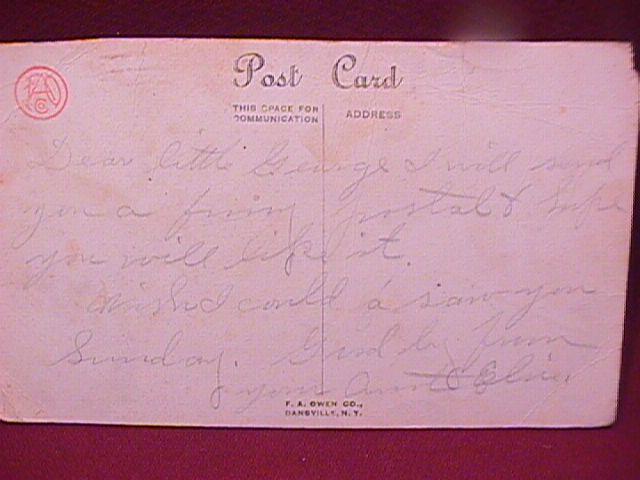 Post Card
THIS SPACE FOR
COMMUNICATION
ADDRESS
Dear little George I will send
you a funny postal & hope
you will like it.
Wish I could a saw you
Sunday. Good by from
your Aunt
F. A. OWEN CO.,
DANSVILLE, N. Y.